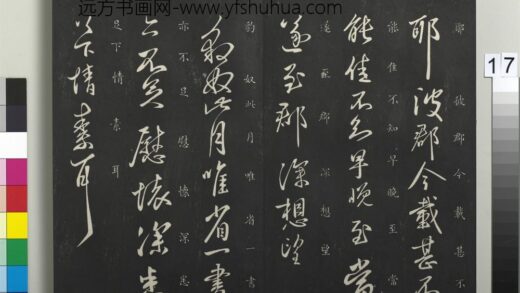 远方书画网-www.yfshuhua.com
17
耶彼郡今載甚不
耶彼郡今載甚不
能佳不知早晚至當
能佳不知早晚至當
遂至郡深想望
遂至郡深想望
豹奴此月唯省一書
豹奴此月唯省一書
亦不足慰懷深悉
亦不足慰懷深悉
足下情素耳
足下情素耳